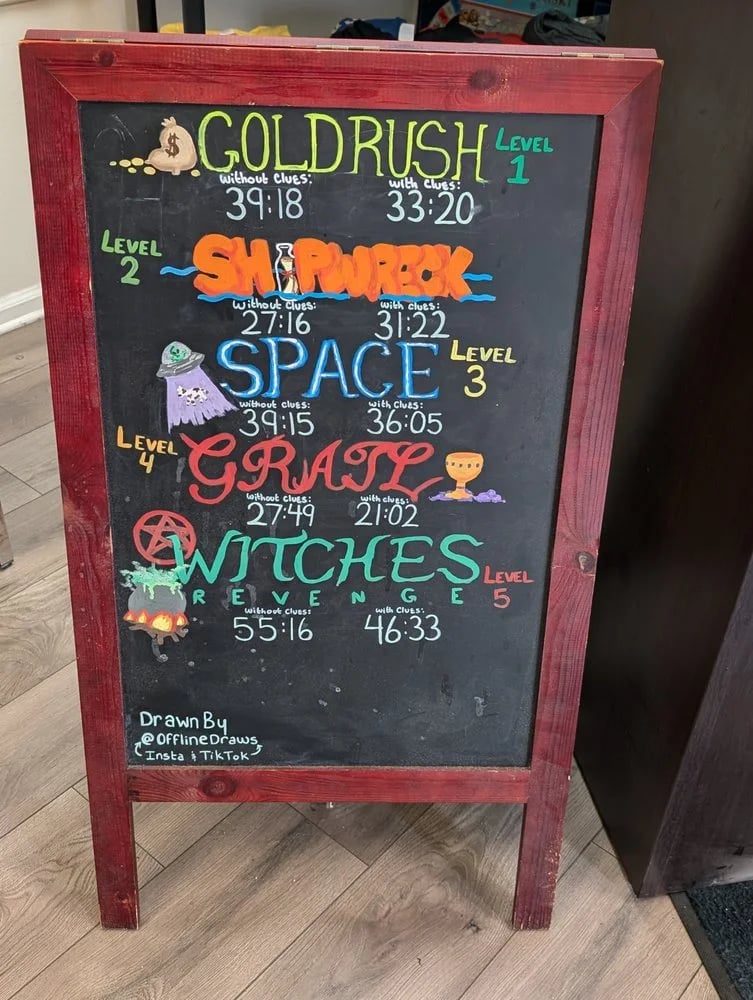 $
GOLDRUSH LEVEL 1
without clues: with clues:
39:18 33:20
LEVEL 2 SHIPWRECK
without clues: with clues:
27:16 31:22
SPACE LEVEL 3
without clues: with clues:
39:15 36:05
LEVEL 4 GRAIL
without clues: with clues:
27:49 21:02
WITCHES
REVENGE LEVEL 5
without clues: with clues:
55:16 46:33
Drawn By
@OfflineDraws
Insta & TikTok